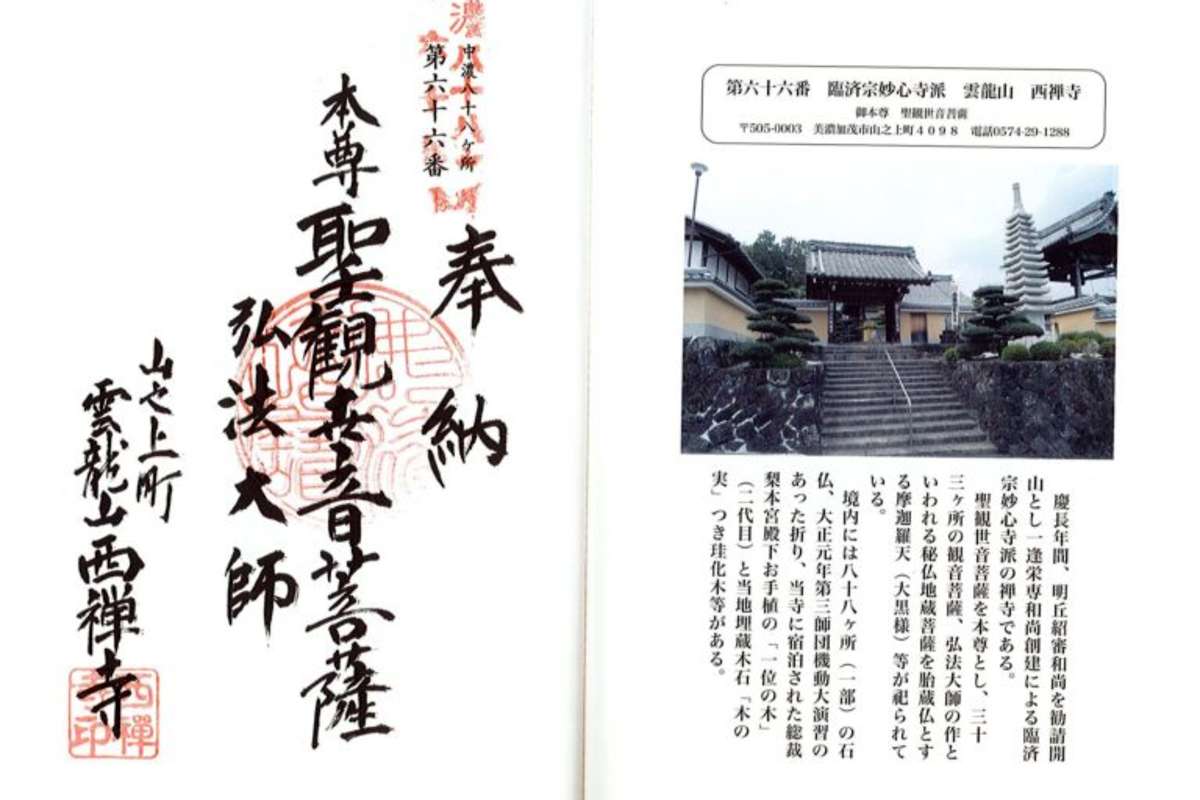 中濃八十八ヶ所
第六十六番
奉納
本尊 聖観世音菩薩
弘法大師
山之上町
雲龍山西禅寺
第六十六番 臨済宗妙心寺派 雲龍山 西禅寺
御本尊 聖観世音菩薩
〒505-0003 美濃加茂市山之上町4098 電話0574-29-1288
慶長年間、明丘紹審和尚を勧請開
山とし一逢栄専和尚創建による臨済
宗妙心寺派の禅寺である。
聖観世音菩薩を本尊とし、三十
三ヶ所の観音菩薩、弘法大師の作と
いわれる秘仏地蔵菩薩を胎蔵仏とす
る摩迦羅天（大黒様）等が祀られて
いる。
境内には八十八ヶ所（一部）の石
仏、大正元年第三師団機動大演習の
あった折り、当寺に宿泊された総裁
梨本宮殿下お手植の「一位の木」
（二代目）と当地埋蔵木石「木の
実」つき珪化木等がある。